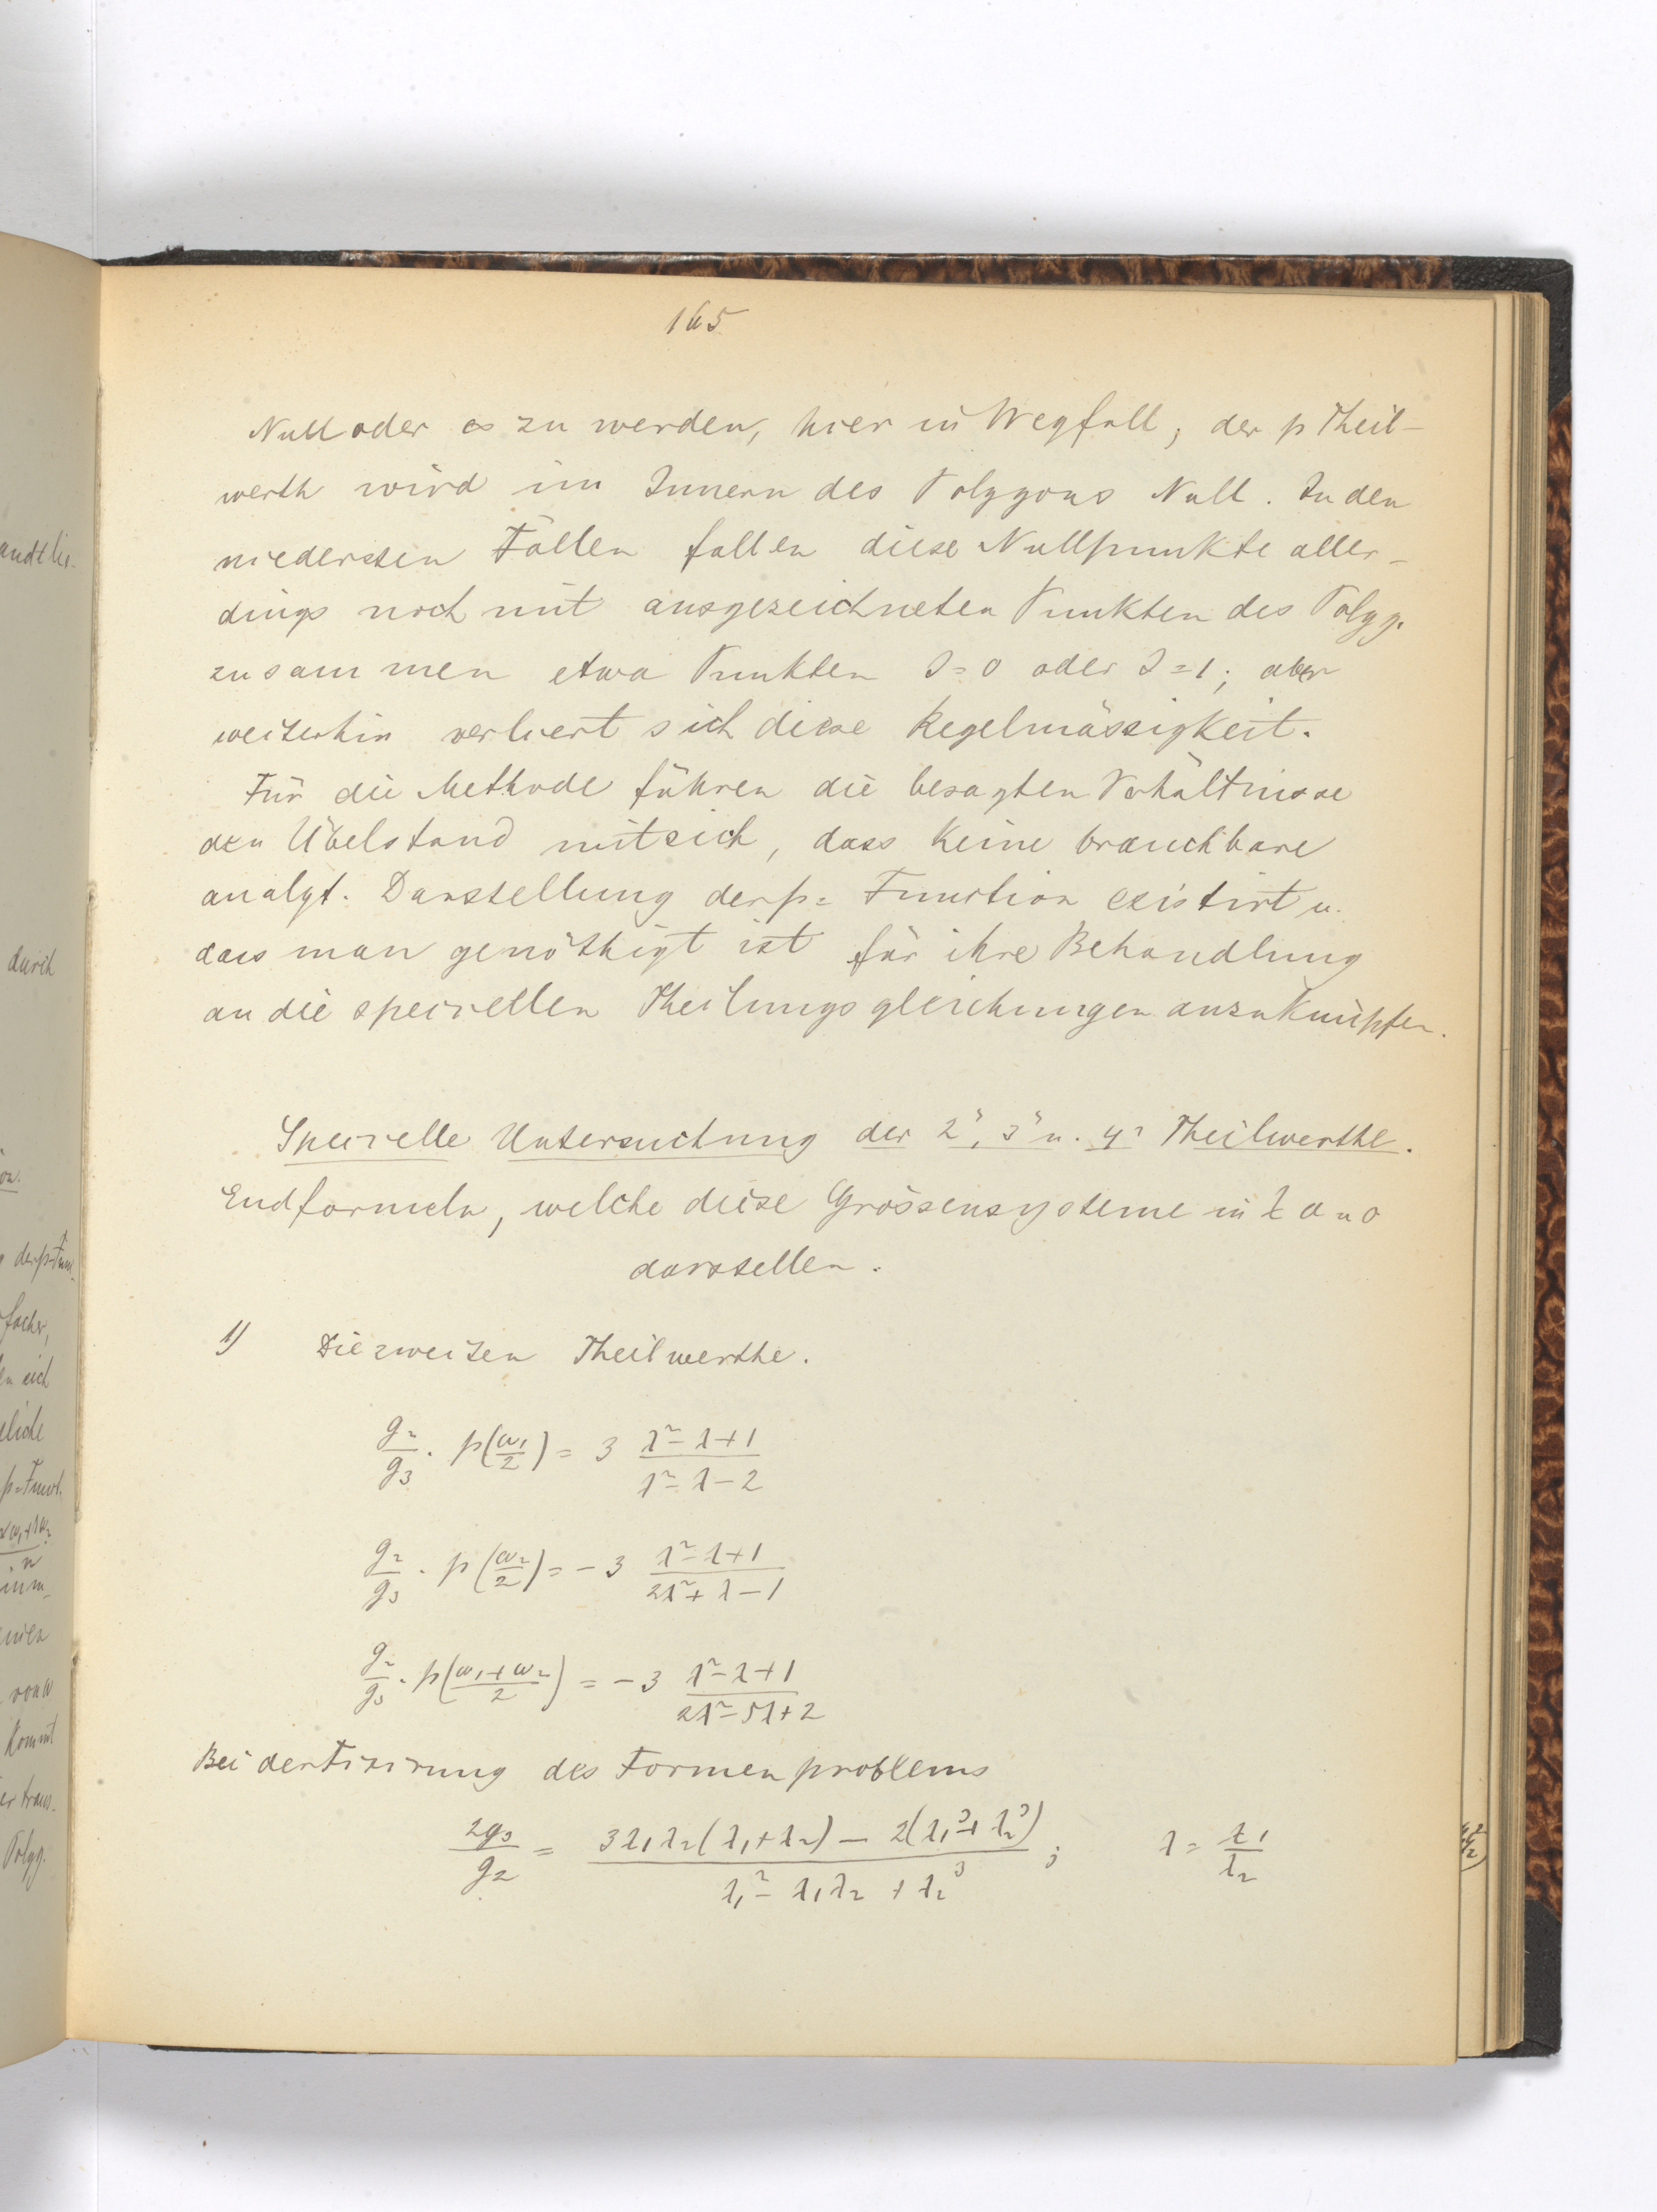 165
Null oder ∞ zu werden, hier in Wegfall; der p Theil-
werth wird im Innern des Polygons Null. In den
niedersten Fällen fallen diese Nullpunkte aller-
dings noch mit ausgezeichneten Punkten des Polyg.
zusammen etwa Punkten J=0 oder J=1; aber
weiterhin verliert sich diese Regelmässigkeit.
Für die Methode führen die besagten Verhältnisse
den Übelstand mit sich, dass keine brauchbare
analyt. Darstellung der p= Function existirt u.
dass man genöthigt ist für ihre Behandlung
an die speciellen Theilungsgleichungen anzuknüpfen.
Specielle Untersuchung der 2n, 3n u. 4n Theilwerthe.
Endformeln, welche diese Grössensysteme in
darstellen.
1) Die zweiten Theilwerthe.
g₂/g₃ · p(ω₁/2) = 3 (λ²-λ+1)/(λ²-λ-2)
g₂/g₃ · p(ω₂/2) = -3 (λ²-λ+1)/(2λ²+λ-1)
g₂/g₃ · p((ω₁+ω₂)/2) = -3 (λ²-λ+1)/(2λ²-5λ+2)
Bei der Fixirung des Formenproblems
2g₃/g₂ = (3λ₁λ₂(λ₁+λ₂) - 2(λ₁³+λ₂³))/(λ₁²-λ₁λ₂+λ₂³); λ = λ₁/λ₂
durch